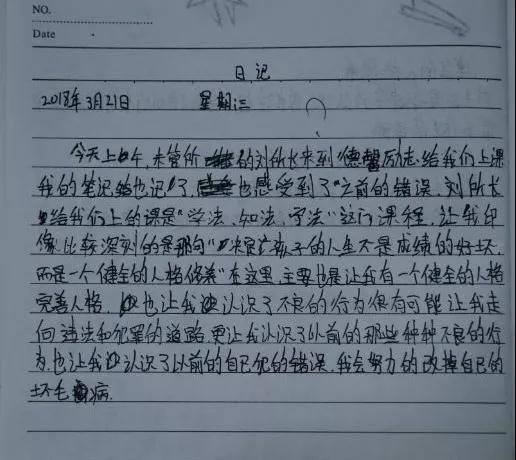 NO.
Date
日记
2018年3月21日 星期三
今天上午,未管所的刘所长来到"德馨励志"给我们上课
我的笔记也记了,也感受到了之前的错误,刘所长
给我们上的课是"学法、知法、守法"这门课程,让我印
像比较深刻的是那句"决定孩子的人生不是成绩的好坏,
而是一个健全的人格修养"在这里,主要也是让我有一个健全的人格
完善人格,也让我认识了不良的行为很有可能让我走
向违法和犯罪的道路,更让我认识了以前的那些种种不良的行
为,也让我认识了以前的自己犯的错误,我会努力的改掉自己的
坏毛病.